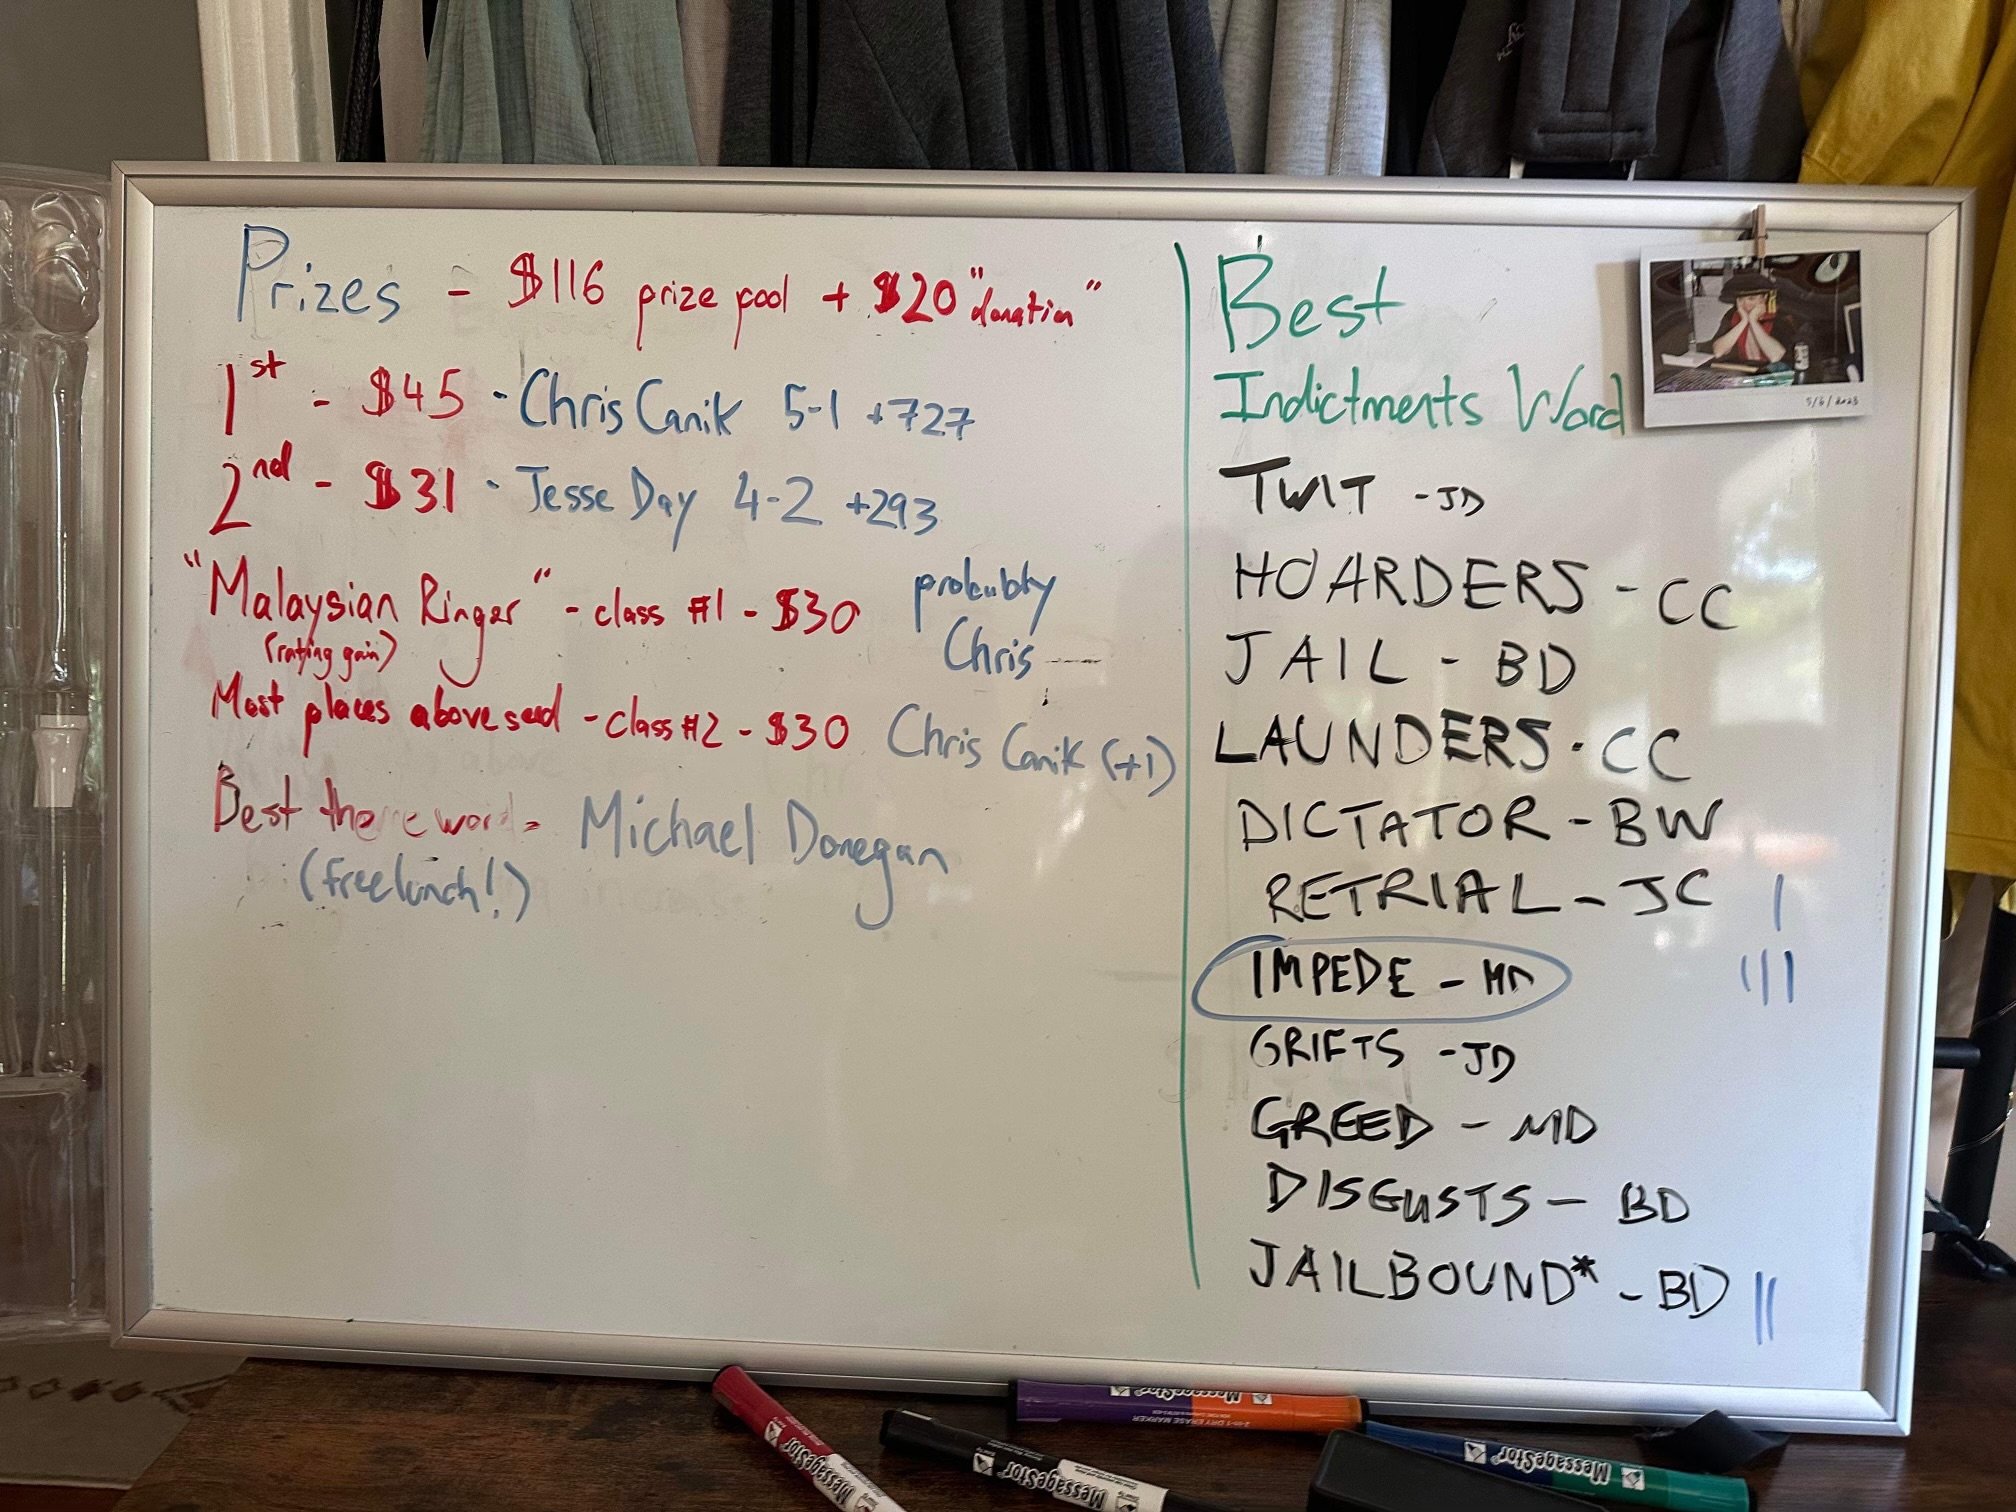 Prizes - $116 prize pool + $20 "donation"
1st - $45 - Chris Canik 5-1 +727
2nd - $31 - Jesse Day 4-2 +293
"Malaysian Ringer" - class #1 - $30 probably Chris
(rating gain)
Most places above seed - class #2 - $30 Chris Canik (+1)
Best theme word - Michael Donegan
(free lunch!)
Best
Indictments Word
TWIT - JD
HOARDERS - CC
JAIL - BD
LAUNDERS - CC
DICTATOR - BW
RETRIAL - JC |
IMPEDE - MD |||
GRIFTS - JD
GREED - MD
DISGUSTS - BD
JAILBOUND* - BD ||
5/6/2023
MessageStor
MessageStor
MessageStor
2-IN-1 DRY ERASE MARKER
MessageStor
MessageStor